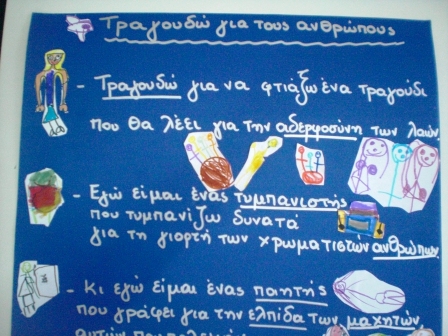 Τραγουδώ για τους ανθρώπους
- Τραγουδώ για να φτιάξω ένα τραγούδι
που θα λέει για την αδερφοσύνη των λαών
- Εγώ είμαι ένας τυμπανιστής
που τυμπανίζω δυνατά
για τη γιορτή των χρωματιστών ανθρώπων
- Κι εγώ είμαι ένας ποιητής
που γράφει για την ελπίδα των μαχητών